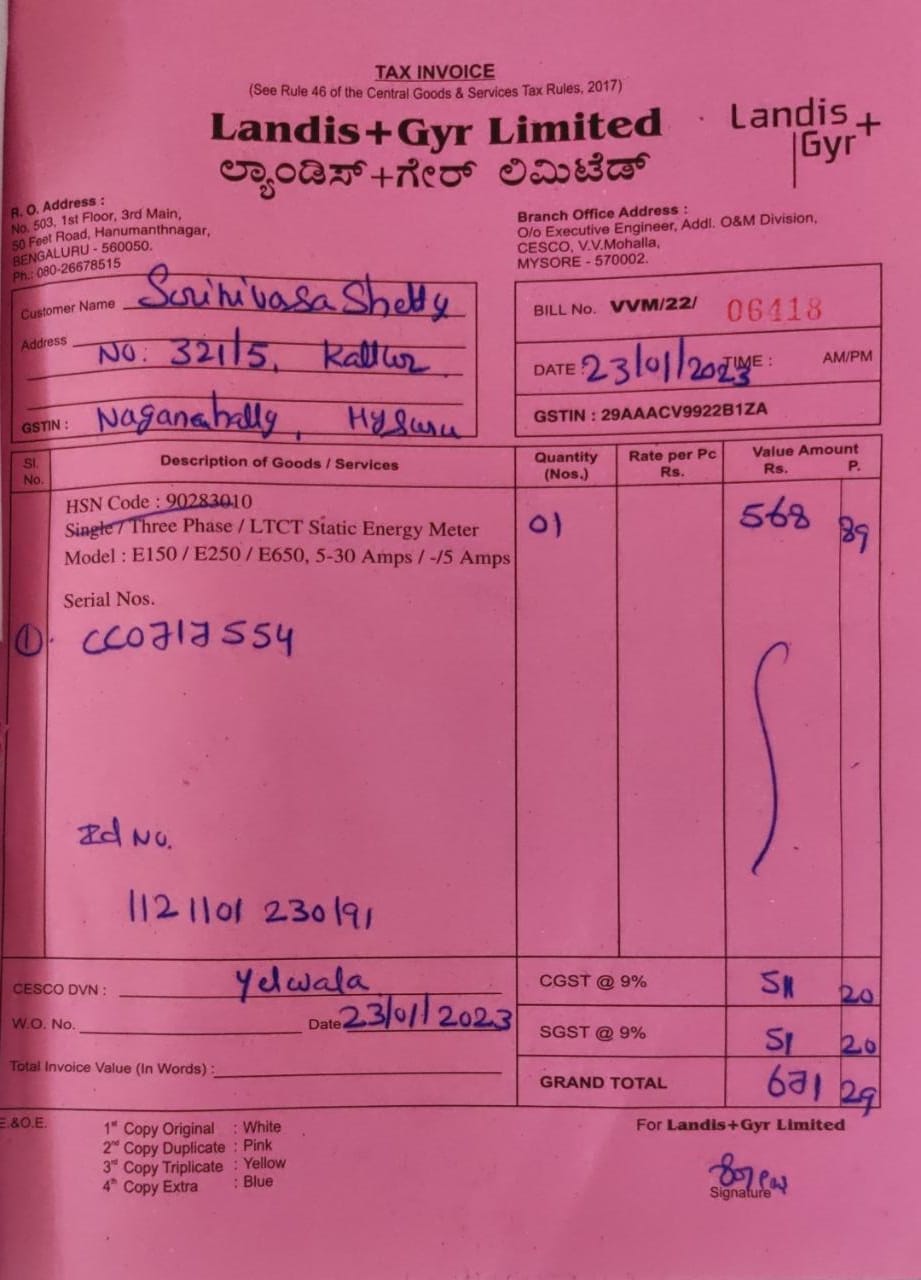 TAX INVOICE
(See Rule 46 of the Central Goods & Services Tax Rules, 2017)
Landis+Gyr Limited
Landis+
Gyr
ಲ್ಯಾಂಡಿಸ್+ಗೇರ್ ಲಿಮಿಟೆಡ್
R. O. Address :
No. 503, 1st Floor, 3rd Main,
50 Feet Road, Hanumanthnagar,
BENGALURU - 560050.
Ph.: 080-26678515
Branch Office Address :
O/o Executive Engineer, Addl. O&M Division,
CESCO, V.V.Mohalla,
MYSORE - 570002.
Customer Name Srinivasa Shetty
Address No: 321/5, Kallur
GSTIN : Naganahally, Mysuru
BILL No. VVM/22/ 06418
DATE : 23/01/2023 TIME : AM/PM
GSTIN : 29AAACV9922B1ZA
Sl. No. Description of Goods / Services Quantity (Nos.) Rate per Pc Rs. Value Amount Rs. P.
HSN Code : 90283010
Single / Three Phase / LTCT Static Energy Meter 01 568 89
Model : E150 / E250 / E650, 5-30 Amps / -/5 Amps
Serial Nos.
① CC0717554
Id No.
1121101230191
CESCO DVN : Yelwala
W.O. No. Date 23/01/2023
Total Invoice Value (In Words) :
CGST @ 9% 51 20
SGST @ 9% 51 20
GRAND TOTAL 671 29
E.&O.E.
1st Copy Original : White
2nd Copy Duplicate : Pink
3rd Copy Triplicate : Yellow
4th Copy Extra : Blue
For Landis+Gyr Limited
Signature